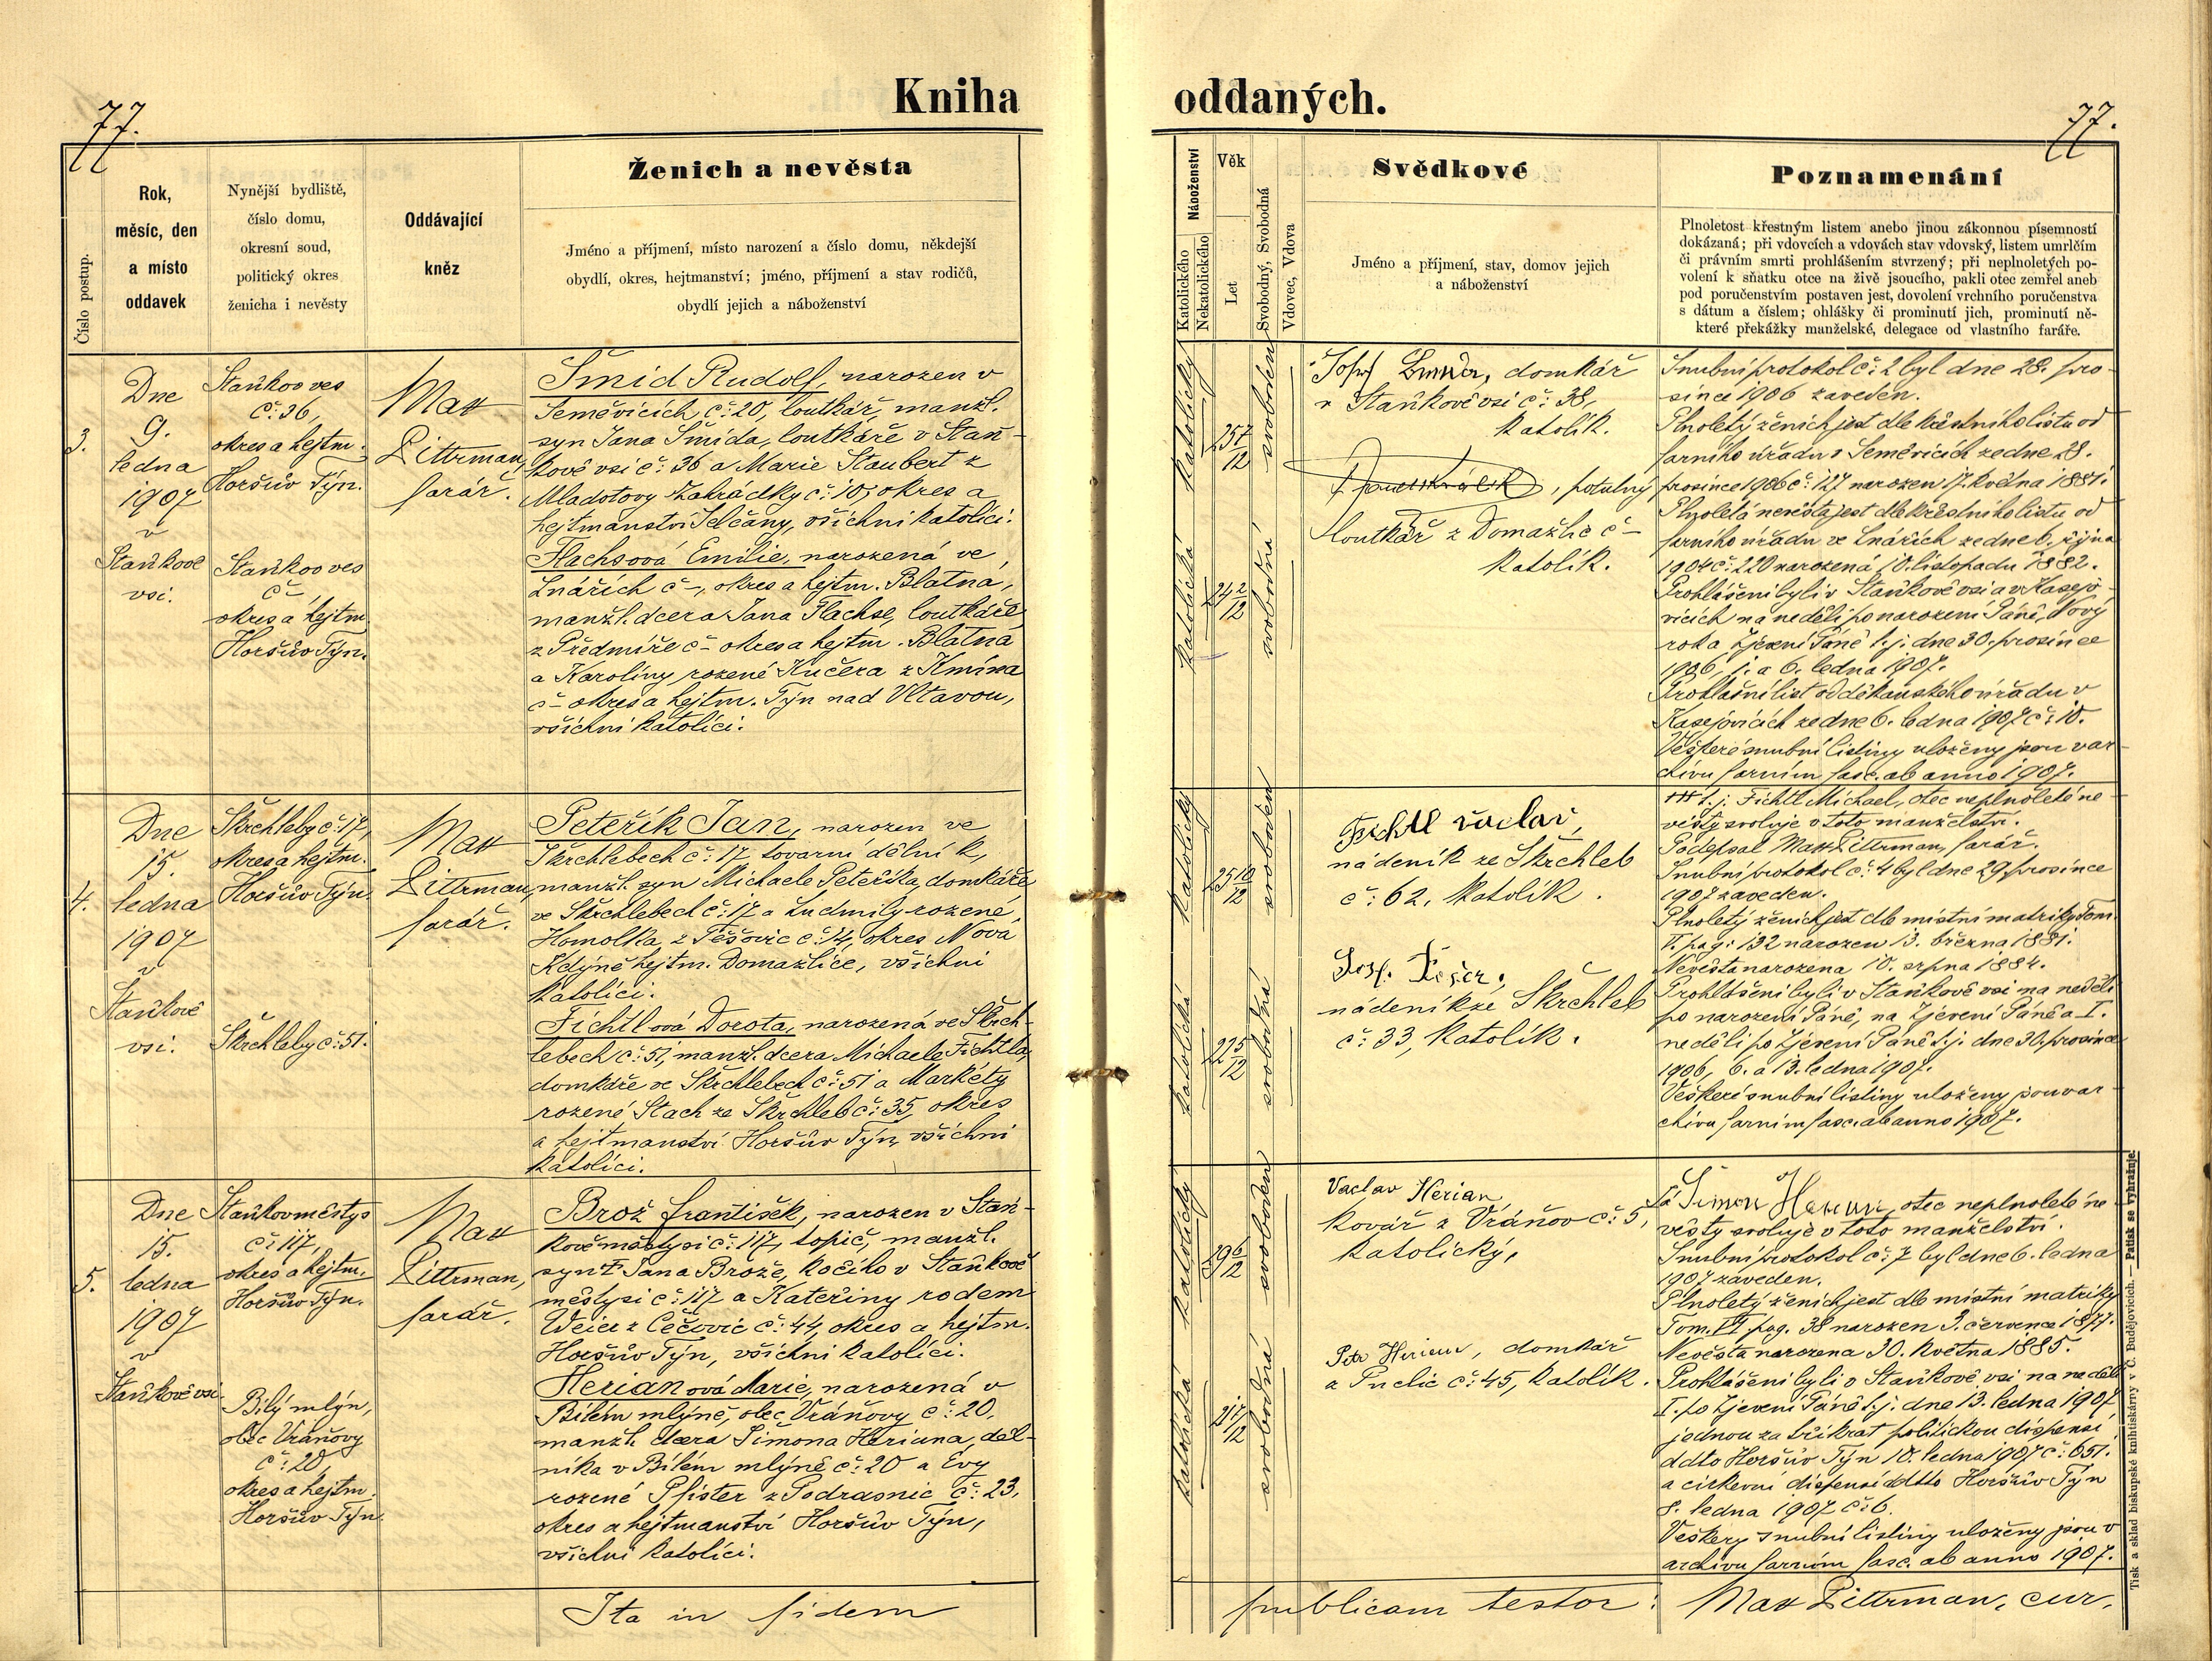 77.
Kniha
Číslo postup.
Rok,
měsíc, den
a místo
oddavek
Nynější bydliště,
číslo domu,
okresní soud,
politický okres
ženicha i nevěsty
Oddávající
kněz
Ženich a nevěsta
Jméno a příjmení, místo narození a číslo domu, někdejší
obydlí, okres, hejtmanství; jméno, příjmení a stav rodičů,
obydlí jejich a náboženství
3.
Dne
9.
ledna
1907
v
Staňkově
vsi.
Staňkov ves
č: 36,
okres a hejtm.
Horšův Týn.
Staňkov ves
č –
okres a hejtm.
Horšův Týn.
Max
Pittrman,
farář.
Šmíd Rudolf, narozen v
Seměvicích č: 20, loutkář, manžl.
syn Jana Šmída, loutkáře v Staň-
kově vsi č: 36 a Marie Staubert z
Mladotovy Zahrádky č: 10, okres a
hejtmanství Selčany, všichni katolíci.
Flachsová Emilie, narozená ve
Lnářích č –, okres a hejtm. Blatná,
manžl. dcera Jana Flachse, loutkáře
z Předmíře č – okres a hejtm. Blatná
a Karolíny rozené Kučera z
č – okres a hejtm. Týn nad Vltavou,
všichni katolíci.
4.
Dne
15.
ledna
1907
v
Staňkově
vsi.
Škrchleby č: 17,
okres a hejtm.
Horšův Týn.
Škrchleby č: 51.
Max
Pittrman,
farář.
Peteřík Jan, narozen ve
Škrchlebech č: 17 tovární dělník,
manžl. syn Michaele Peteříka, domkáře
ve Škrchlebech č: 17 a Ludmily rozené
Homolka z Těšovic č: 14, okres Nová
Kdýně hejtm. Domažlice, všichni
katolíci.
Fichtlová Dorota, narozená ve Škrch-
lebech č: 51, manžl. dcera Michaele Fichtla,
domkáře ve Škrchlebech č: 51 a Markéty
rozené Stach ze Škrchleb č: 35, okres
a hejtmanství Horšův Týn, všichni
katolíci.
5.
Dne
15.
ledna
1907
v
Staňkově vsi.
Staňkov městys
č: 117,
okres a hejtm.
Horšův Týn.
Bílý mlýn,
obec Vráňovy
č: 20,
okres a hejtm.
Horšův Týn.
Max
Pittrman,
farář.
Brož František, narozen v Staň-
kově městysi č: 117, topič, manžl.
syn † Jana Brože, kočího v Staňkově
městysi č: 117 a Kateřiny rodem
Weier z Čečovic č: 44, okres a hejtm.
Horšův Týn, všichni katolíci.
Herianová Marie, narozená v
Bílém mlýně, obec Vráňovy č: 20,
manžl. dcera Šimona Heriana, děl-
níka v Bílém mlýně č: 20 a Evy
rozené Pfister z Podrasnic č: 23,
okres a hejtmanství Horšův Týn,
všichni katolíci.
Ita in fidem
oddaných.
77.
Náboženství
Katolického
Nekatolického
Věk
Let
Svobodný, Svobodná
Vdovec, Vdova
Svědkové
Jméno a příjmení, stav, domov jejich
a náboženství
Poznamenání
Plnoletost křestným listem anebo jinou zákonnou písemností
dokázaná; při vdovcích a vdovách stav vdovský, listem umrlčím
či právním smrti prohlášením stvrzený; při neplnoletých po-
volení k sňatku otce na živě jsoucího, pakli otec zemřel aneb
pod poručenstvím postaven jest, dovolení vrchního poručenstva
s dátum a číslem; ohlášky či prominutí jich, prominutí ně-
které překážky manželské, delegace od vlastního faráře.
katolický
25 7/12
svoboden
katolická
24 2/12
svobodná
domkář
v Staňkově vsi č: 38,
katolík.
, potulný
loutkář z Domažlic č –
katolík.
Snubní protokol č: 2 byl dne 28. pro-
since 1906 zaveden.
Plnoletý ženich jest dle křestního listu od
farního úřadu v Seměvicích ze dne 28.
prosince 1906 č: 127 narozen 17. května 1881.
Plnoletá nevěsta jest dle křestního listu od
farního úřadu ve Lnářích ze dne 6. října
1904 č: 220 narozená 10. listopadu 1882.
Prohlášeni byli v Staňkově vsi a v Kasejo-
vicích na neděli po narození Páně, Nový
rok a Zjevení Páně t. j. dne 30. prosince
1906, 1. a 6. ledna 1907.
Prohlašní list od děkanského úřadu v
Kasejovicích ze dne 6. ledna 1907 č: 10.
Veškeré snubní listiny uloženy jsou v ar-
chivu farním fasc. ab anno 1907.
katolický
25 10/12
svoboden
katolická
22 5/12
svobodná
Fichtl Václav,
nádeník ze Škrchleb
č: 62, katolík.
nádeník ze Škrchleb
č: 33, katolík.
††† t. j. Fichtl Michael, otec neplnoleté ne-
věsty svoluje v toto manželství.
Podepsal Max Pittrman, farář.
Snubní protokol č: 4 byl dne 29 prosince
1907 zaveden.
Plnoletý ženich jest dle místní matriky Tom.
V. pag: 132 narozen 13. března 1881.
Nevěsta narozena 10. srpna 1884.
Prohlášeni byli v Staňkově vsi na neděli
po narození Páně, na Zjevení Páně a I.
neděli po Zjevení Páně t. j. dne 30. prosince
1906, 6. a 13. ledna 1907.
Veškeré snubní listiny uloženy jsou v ar-
chivu farním fasc. ab anno 1907.
katolický
29 6/12
svoboden
katolická
21 7/12
svobodná
Vaclav Herian
kovář z Vráňov č: 5,
katolický,
Petr Herian, domkář
z Puclic č: 45, katolík.
Já Šimon Herian, otec neplnoleté ne-
věsty svoluje v toto manželství.
Snubní protokol č: 7 byl dne 6. ledna
1907 zaveden.
Plnoletý ženich jest dle místní matriky
Tom. VI pag. 38 narozen 3. července 1877.
Nevěsta narozena 30. května 1885.
Prohlášeni byli v Staňkově vsi na neděli
I. po Zjevení Páně t. j. dne 13. ledna 1907
jednou za třikrát politickou dispensí
ddto Horšův Týn 10. ledna 1907 č: 651.
a církevní dispensí ddto Horšův Týn
8. ledna 1907 č: 6.
Veškery snubní listiny uloženy jsou v
archivu farním fasc. ab anno 1907.
publicam testor: Max Pittrman, cur.
Tisk a sklad biskupské knihtiskárny v Č. Budějovicích. — Patisk se vyhražuje.